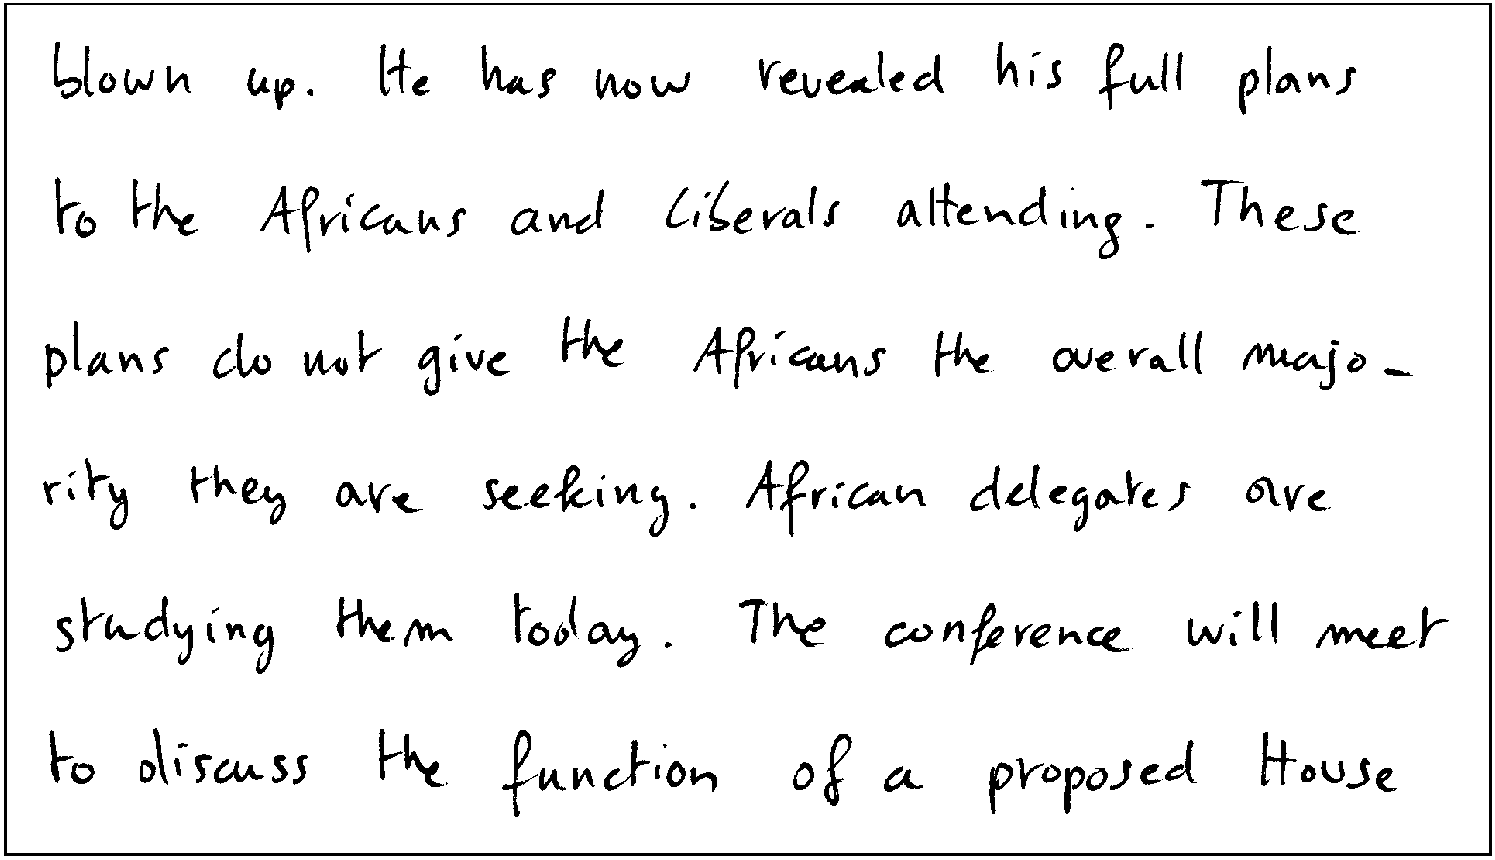 blown up. He has now revealed his full plans
to the Africans and Liberals attending. These
plans do not give the Africans the overall majo-
rity they are seeking. African delegates are
studying them today. The conference will meet
to discuss the function of a proposed House